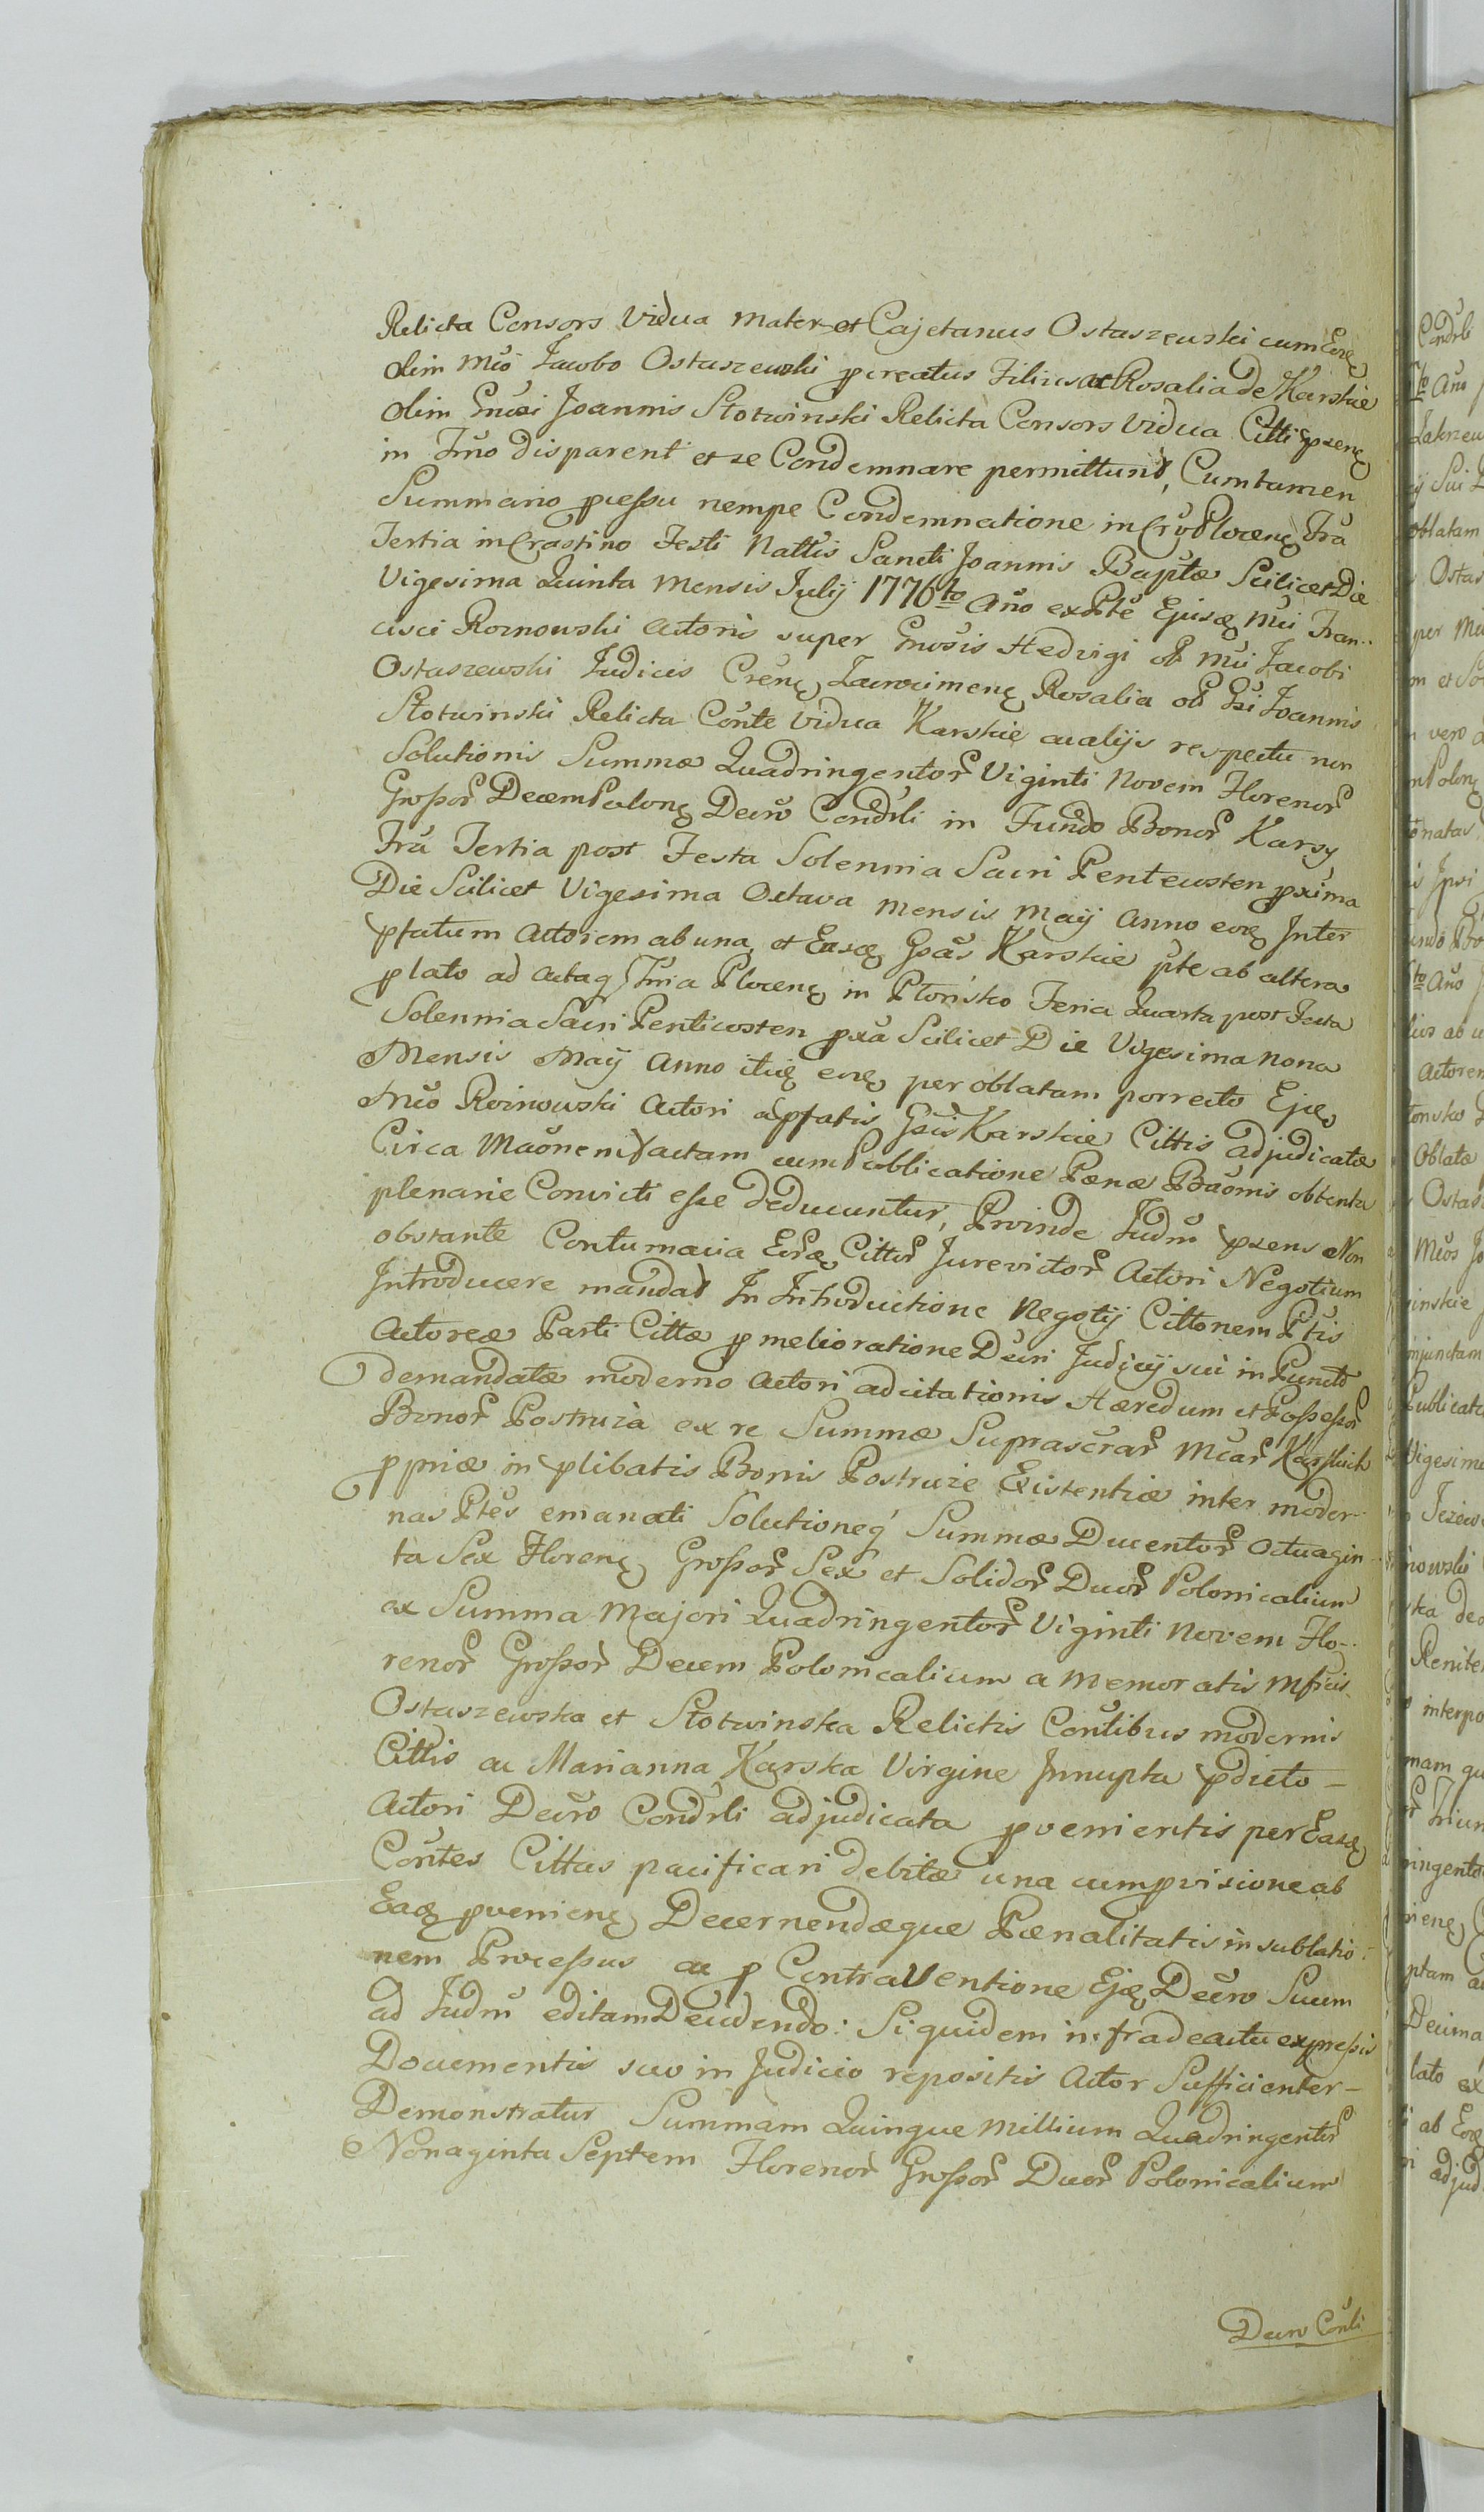 Relicta Consors Vidua Mater et Cajetanus Ostaszewski cum Eoꝝ
olim Mũo Jacobo Ostaszewski pcreatus Filius ac Rosalia de Karskie
olim Gnũsi Joannis Słotwinski Relicta Consors Vidua Citti pseneʒ
in Tr̃no disparent et se Condemnare permittunt, Cum tamen
Summario pcessu nempe Condemnatione in Cryb Płoceneʒ Fr̃a
Tertia in Crastino Festi Nattis Sancti Joannis Baptæ Scilicet Die
Vigesima Quinta Mensis Julij 1776to Ãno ex Ptẽ Ejusꝗ Mũi Fran-
cisci Roznowski Actoris super Gnosis Hedvigi ol̃ Mũi Jacobi
Ostaszewski Judicis Creneʒ Zawrimeneʒ Rosalia ol̃ Gsi Joannis
Słotwinski Relicta Conte Vidua Karskie ac alijs respectu non
Solutionis Summæ Quadringentor̃ Viginti Novem Florenor̃
Grossor̃ Decem Poloneʒ Decr̃o Condr̃li in Fundo Bonor̃ Karsy
Fr̃a Tertia post Festa Solennia Sacri Pentecosten pxima
Die Scilicet Vigesima Octava Mensis Maij Anno eoꝗ Inter
pfatum Actorem ab una, et Easꝗ Gsas Karskie pte ab altera
plato ad Actaꝗ Tr̃nia Płoceneʒ in Płońsko Feria Quarta post Festa
Solennia Sacri Penticosten pxa Scilicet Die Vigesima Nona
Mensis Maij Anno itiꝗ eoꝗ per oblatam porrecto Ejꝗ
Mũo Roznowski Actori a pfatis Gsis Karskie Cittis adjudicatæ
Circa Maõnem factam cum Publicatione Pænæ Bãõnis obtenta
plenarie Convicti esse deducuntur, Proinde Judm̃ psens Non
obstante Contumacia Eor̃ꝗ Cittor̃ Jurevictor̃ Actori Negotium
Introducere mandat In Introductione Negotij Cittonem Ptis
Actoreæ Parti Cittæ p melioratione Decri Judicij sui in Puncto
demandatæ moderno Actori adcitationis Hæredum et Possessor̃
Bonor̃ Postruża ex re Summæ Suprascrar̃ Mcar̃ Karskich
ppriæ in plibatis Bonis Postruże Existentiæ inter moder-
nas Ptes emanati Solutioneq́ Summæ Ducentor̃ Octuagin-
ta Sex Floreneʒ Grossor̃ Sex et Solidor̃ Duor̃ Polonicalium
ex Summa Majori Quadringentor̃ Viginti Novem Flo-
renor̃ Grossor̃ Decem Polonicalium a Memoratis Mficis
Ostaszewska et Słotwinska Relictis Contibus modernis
Cittis ac Marianna Karska Virgine Innupta pdicto –
Actori Decr̃o Condr̃li adjudicata pvenientis per Easꝗ
Contes Cittas pacificari debitæ una cum pvisione ab
Eaꝗ pvenieneʒ Decernendæque Pænalitatis in sublatio-
nem Processus ac p Contraventione Ejꝗ Decr̃o Suum
ad Judm̃ editam Decidendo: Siquidem infra de actu expressis
Documentis suo in Judicio repositis Actor Sufficienter –
Demonstratur Summam Quinque Millium Quadringentor̃
Nonaginta Septem Florenor̃ Grossor̃ Duor̃ Polonicalium
Decr̃o Conli